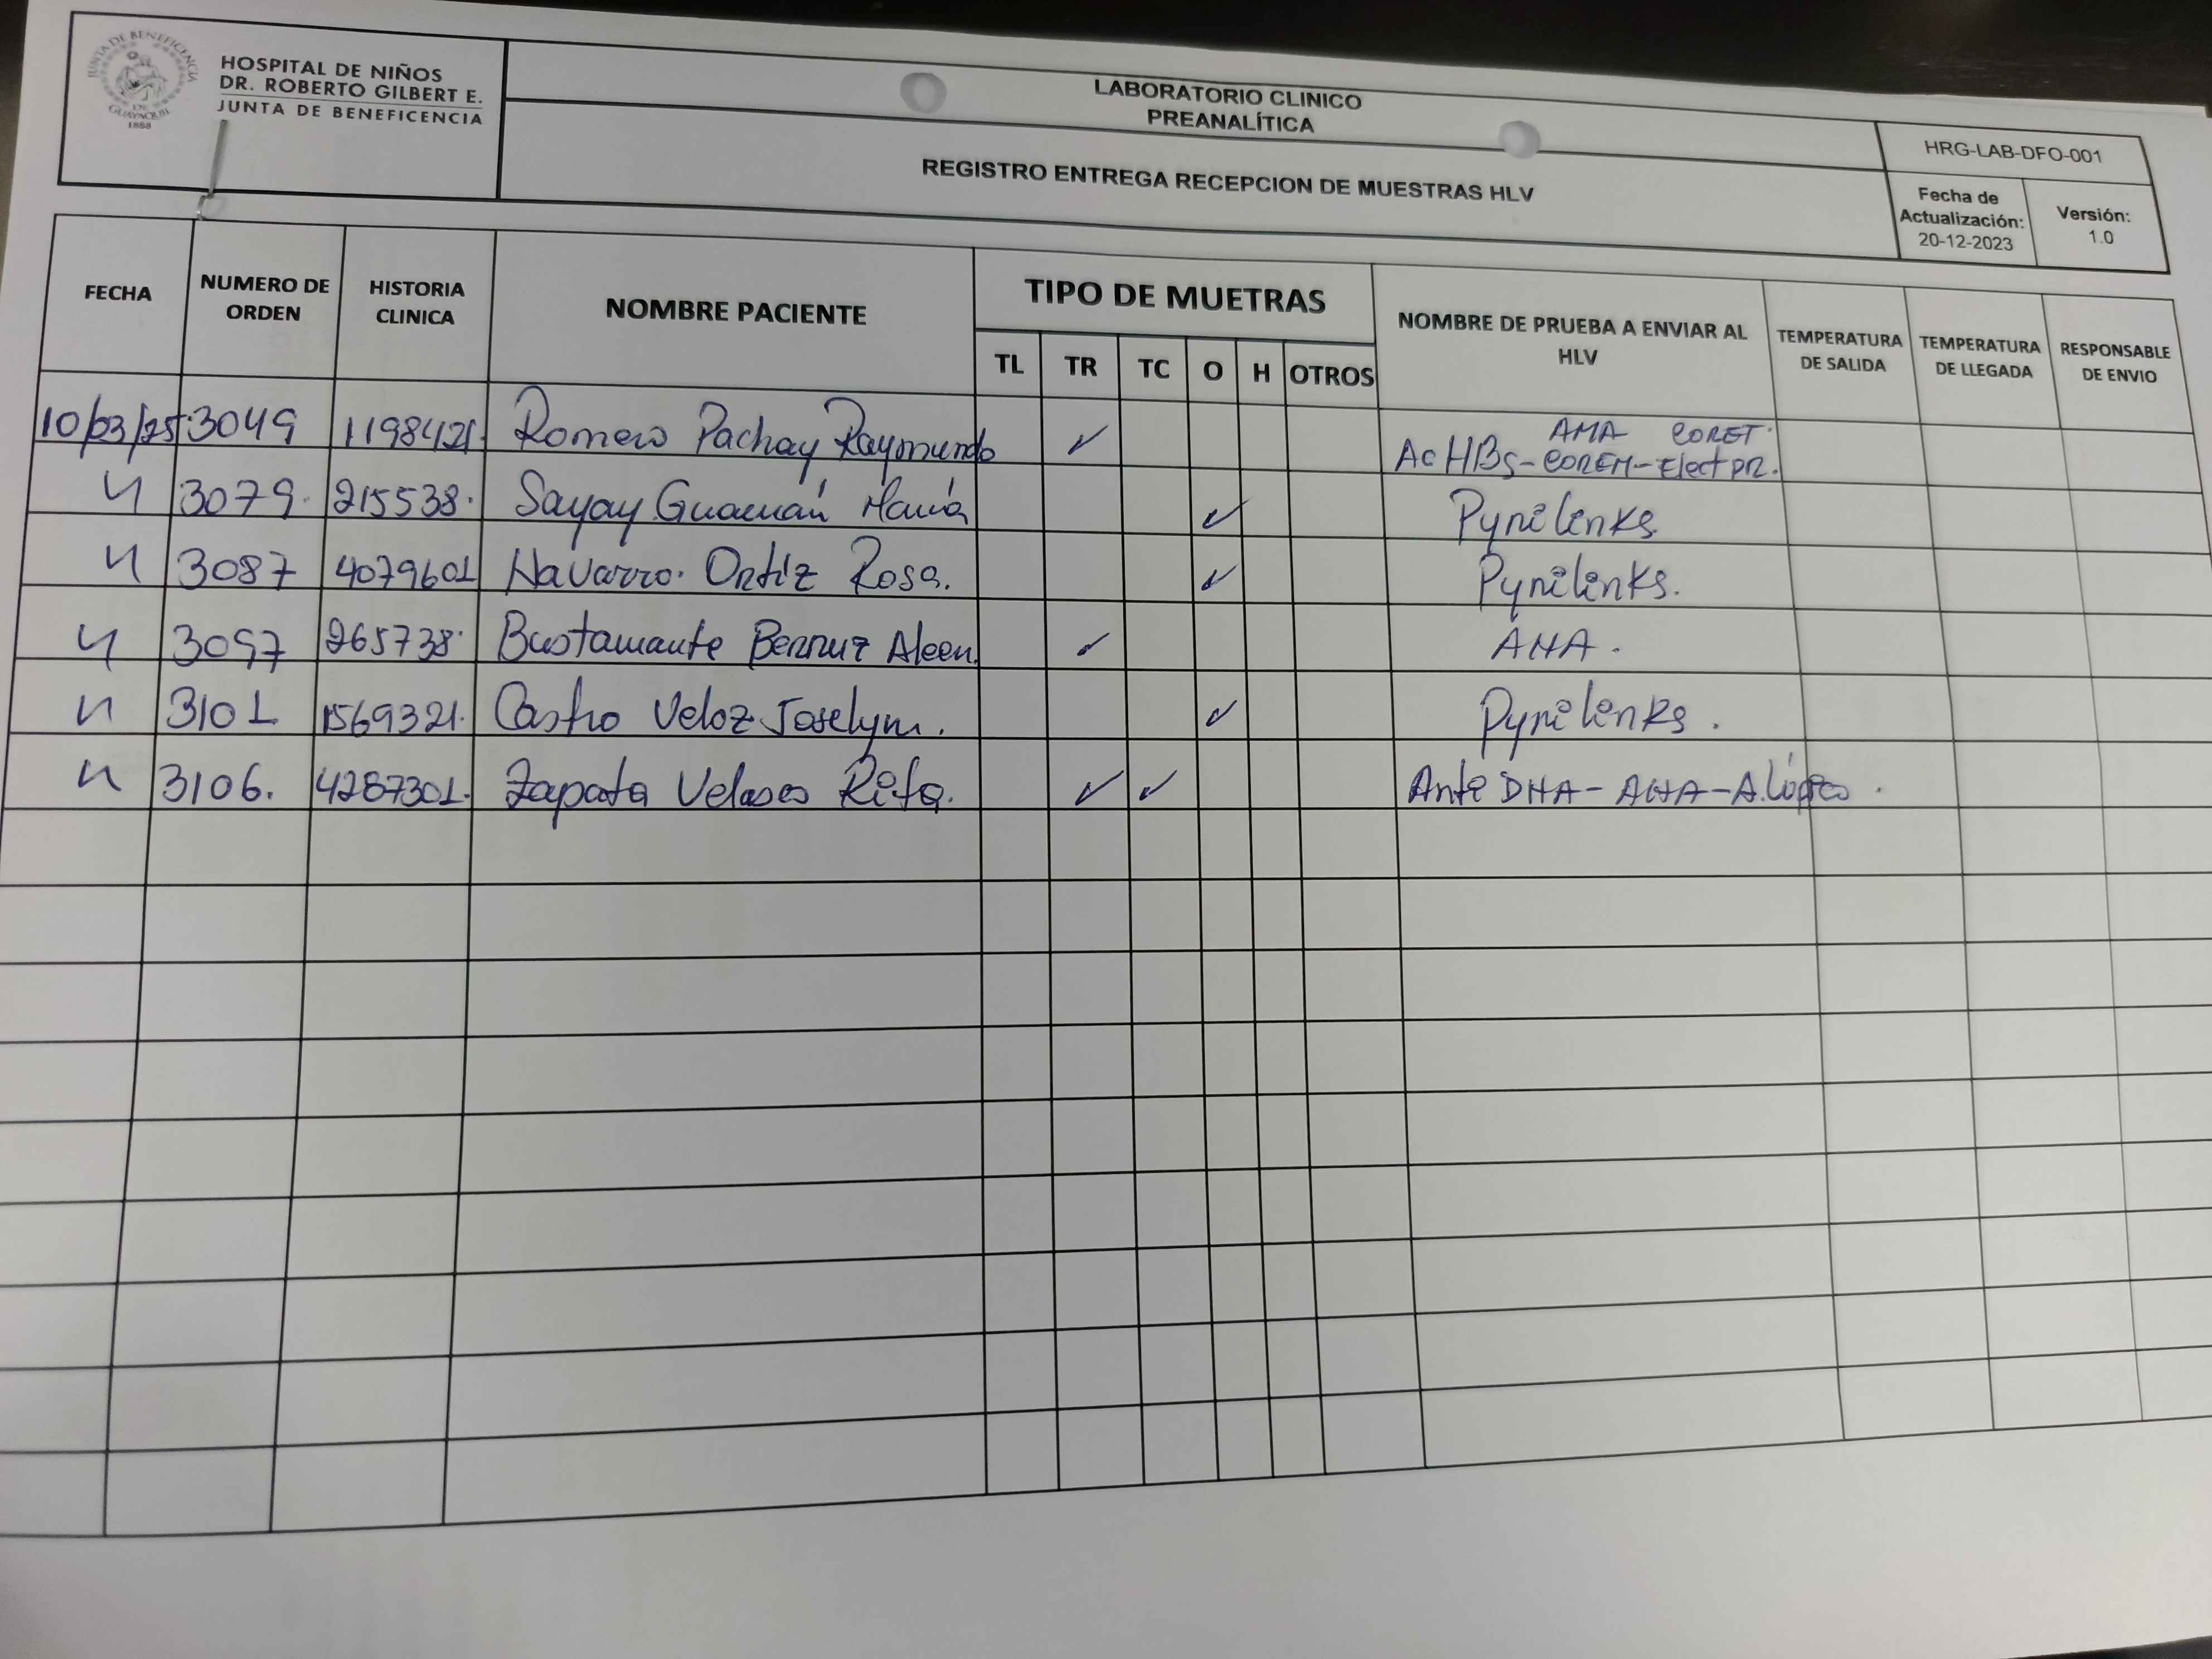 JUNTA DE BENEFICENCIA
DE
GUAYAQUIL
1888
HOSPITAL DE NIÑOS
DR. ROBERTO GILBERT E.
JUNTA DE BENEFICENCIA
LABORATORIO CLINICO
PREANALÍTICA
REGISTRO ENTREGA RECEPCION DE MUESTRAS HLV
HRG-LAB-DFO-001
Fecha de
Actualización:
20-12-2023
Versión:
1.0
FECHA
NUMERO DE
ORDEN
HISTORIA
CLINICA
NOMBRE PACIENTE
TIPO DE MUETRAS
TL TR TC O H OTROS
NOMBRE DE PRUEBA A ENVIAR AL
HLV
TEMPERATURA
DE SALIDA
TEMPERATURA
DE LLEGADA
RESPONSABLE
DE ENVIO
10/03/25 3049 1198421. Romero Pachay Raymundo ✓ AMA CORET.
AcHBs-COREM-Elect PR.
4 3079. 215538. Sayay Guamán María ✓ Pyrilinks
4 3087 4079601 Navarro. Ortíz Rosa. ✓ Pyrilinks.
4 3097 265738. Bustamante ✓ AHA.
4 3101 1569321. Castro Veloz Joselym. ✓ Pyrilinks.
4 3106. 4287301. Zapata Velasco Rita. ✓ ✓ Anti DHA-AHA-A.